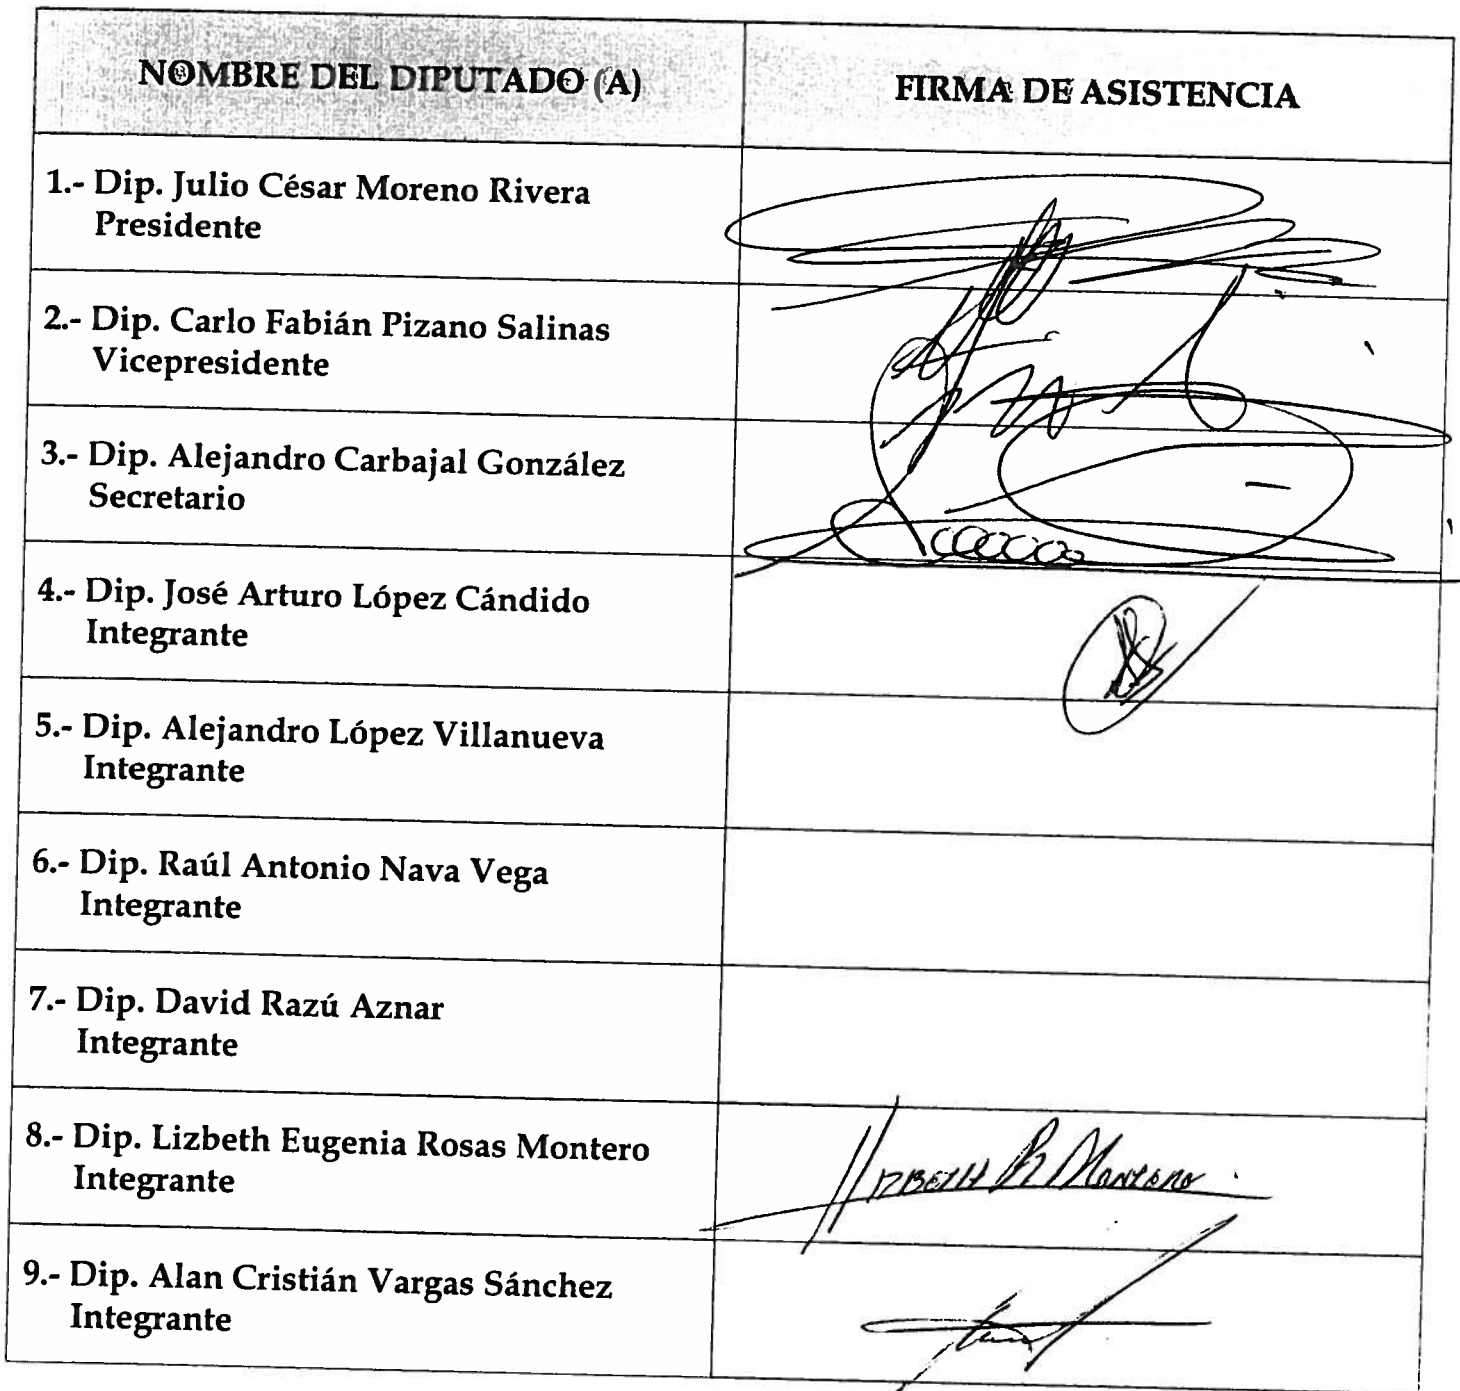 NOMBRE DEL DIPUTADO (A)
FIRMA DE ASISTENCIA
1.- Dip. Julio César Moreno Rivera
Presidente
2.- Dip. Carlo Fabián Pizano Salinas
Vicepresidente
3.- Dip. Alejandro Carbajal González
Secretario
4.- Dip. José Arturo López Cándido
Integrante
5.- Dip. Alejandro López Villanueva
Integrante
6.- Dip. Raúl Antonio Nava Vega
Integrante
7.- Dip. David Razú Aznar
Integrante
8.- Dip. Lizbeth Eugenia Rosas Montero
Integrante
LIZBETH R Montero
9.- Dip. Alan Cristián Vargas Sánchez
Integrante